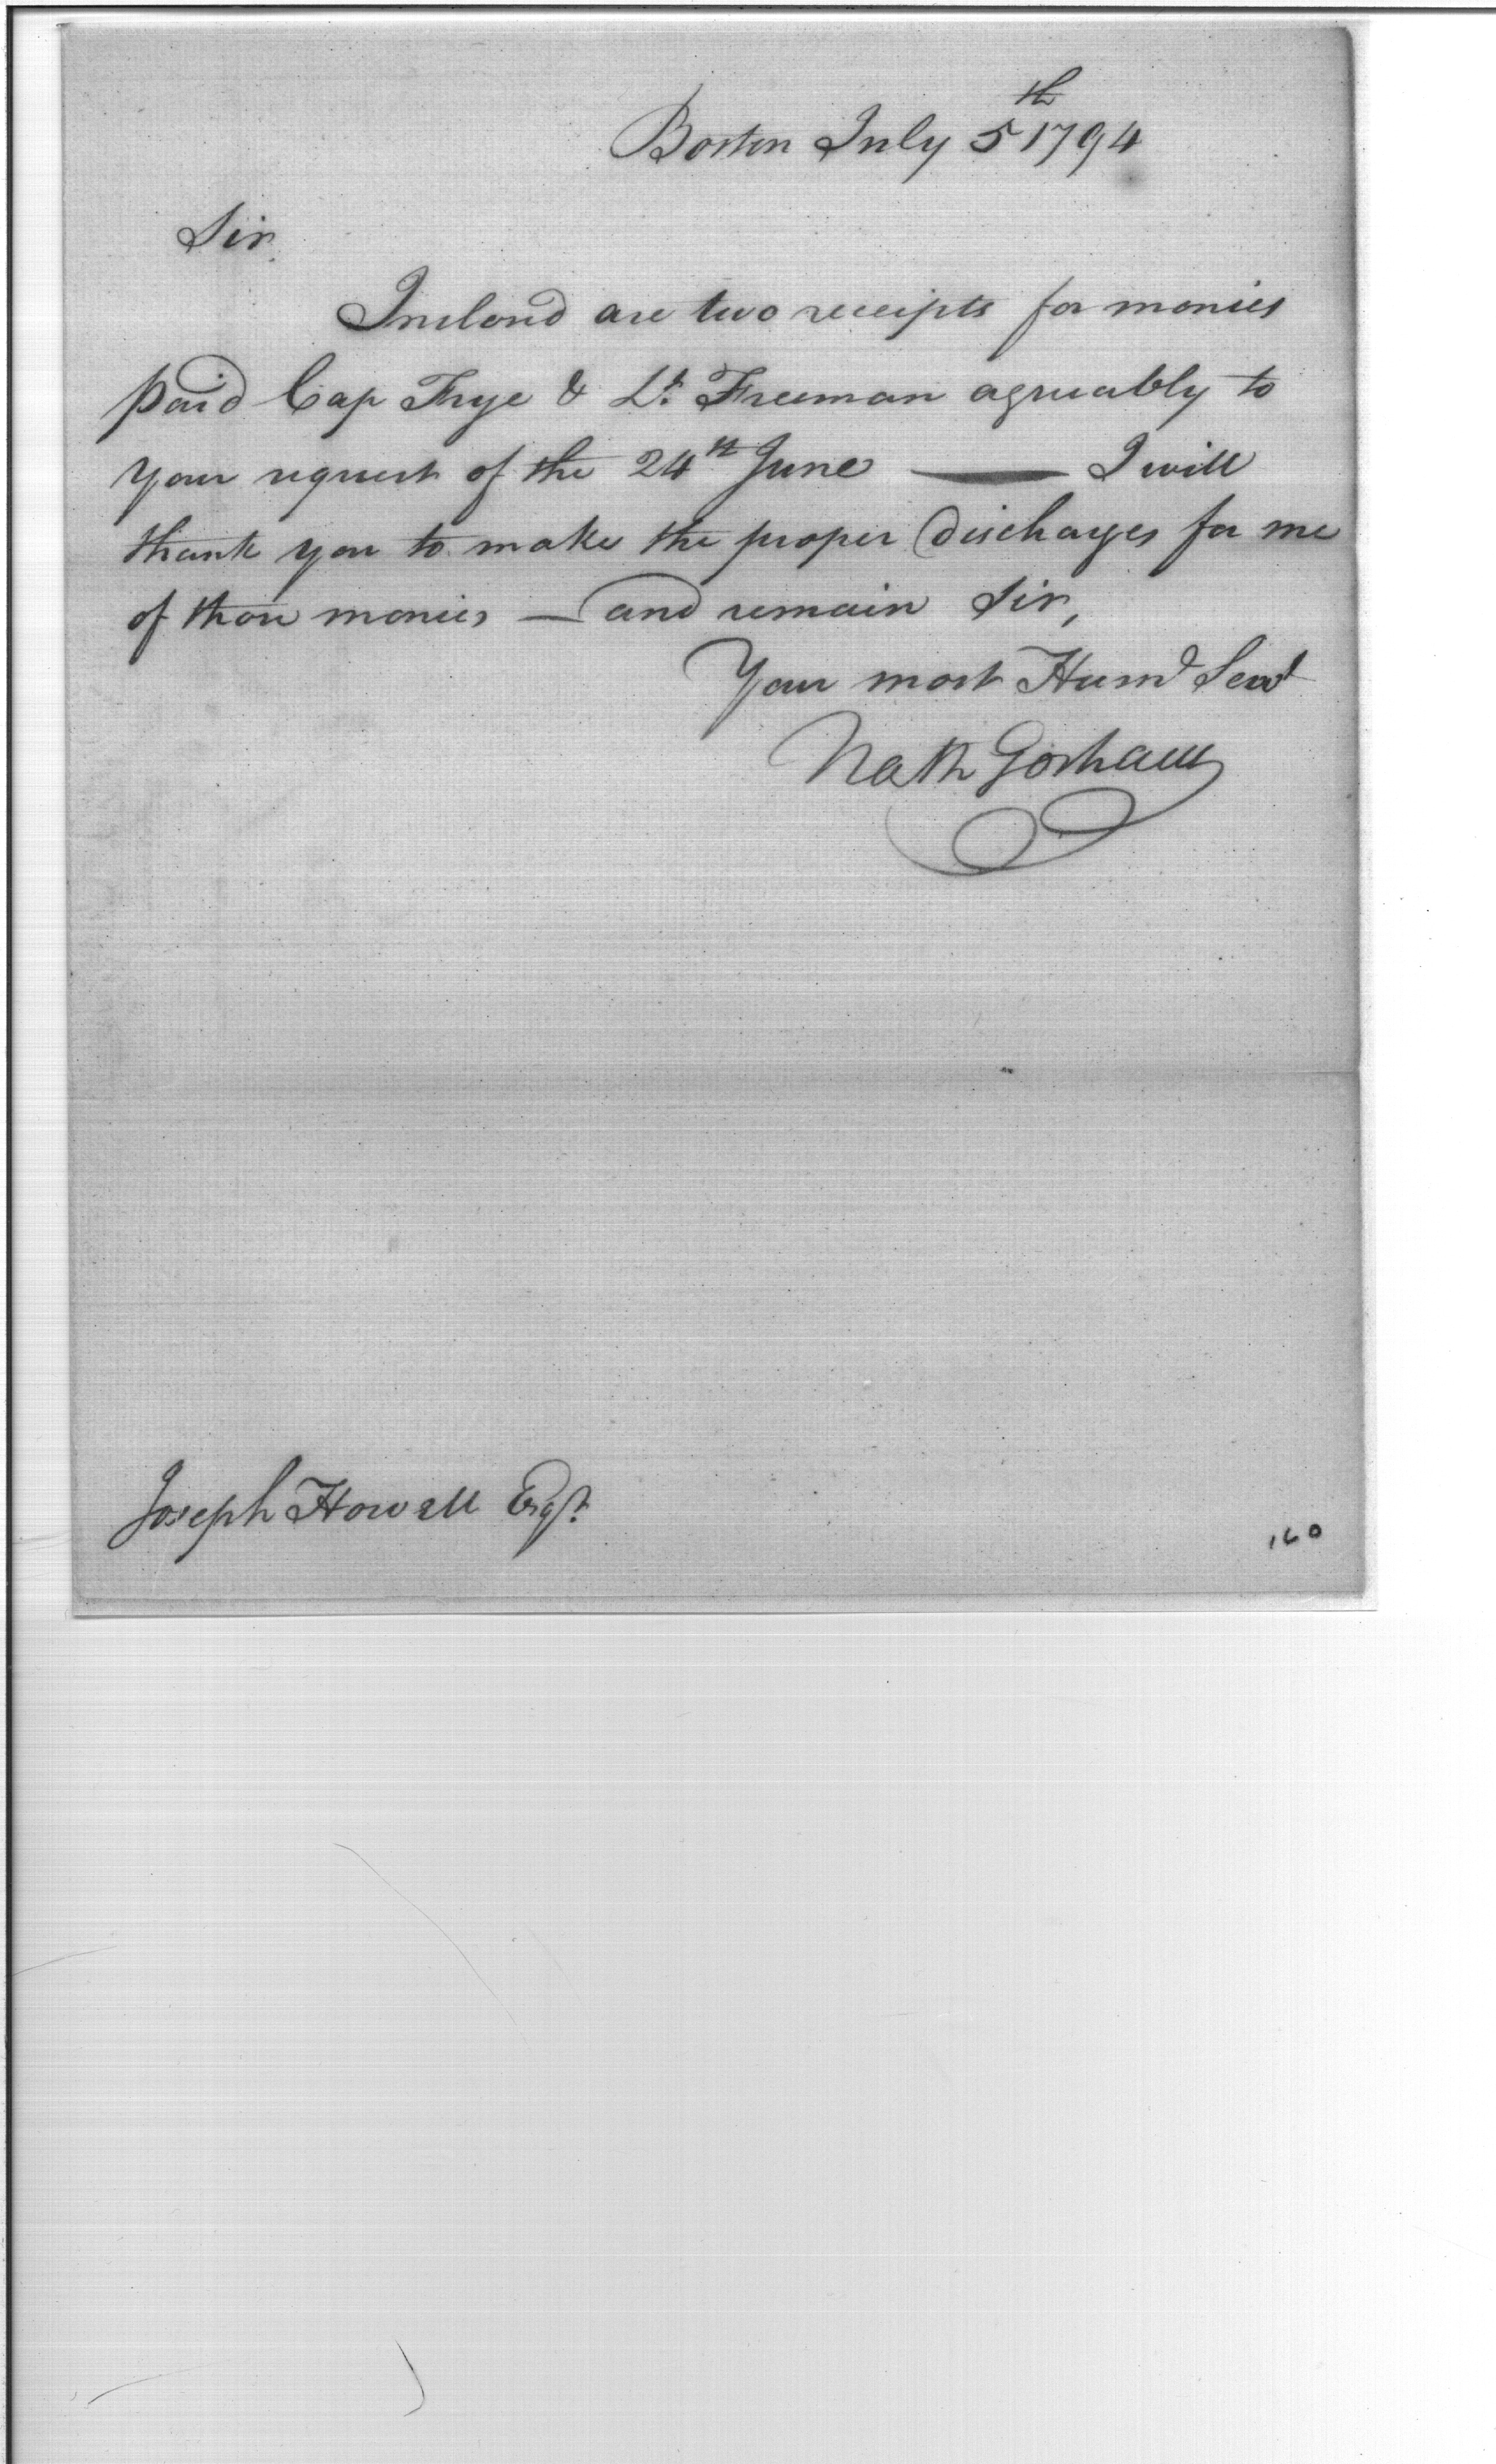 Boston July 5th 1794
Sir,
Inclosd are two receipts for monies
paid Cap Frye & Lt. Freeman agreeably to
your request of the 24th June — I will
thank you to make the proper discharges for me
of those monies — and remain Sir,
Your most Humd Servt
Nath Gorham
Joseph Howell Esqr.
160